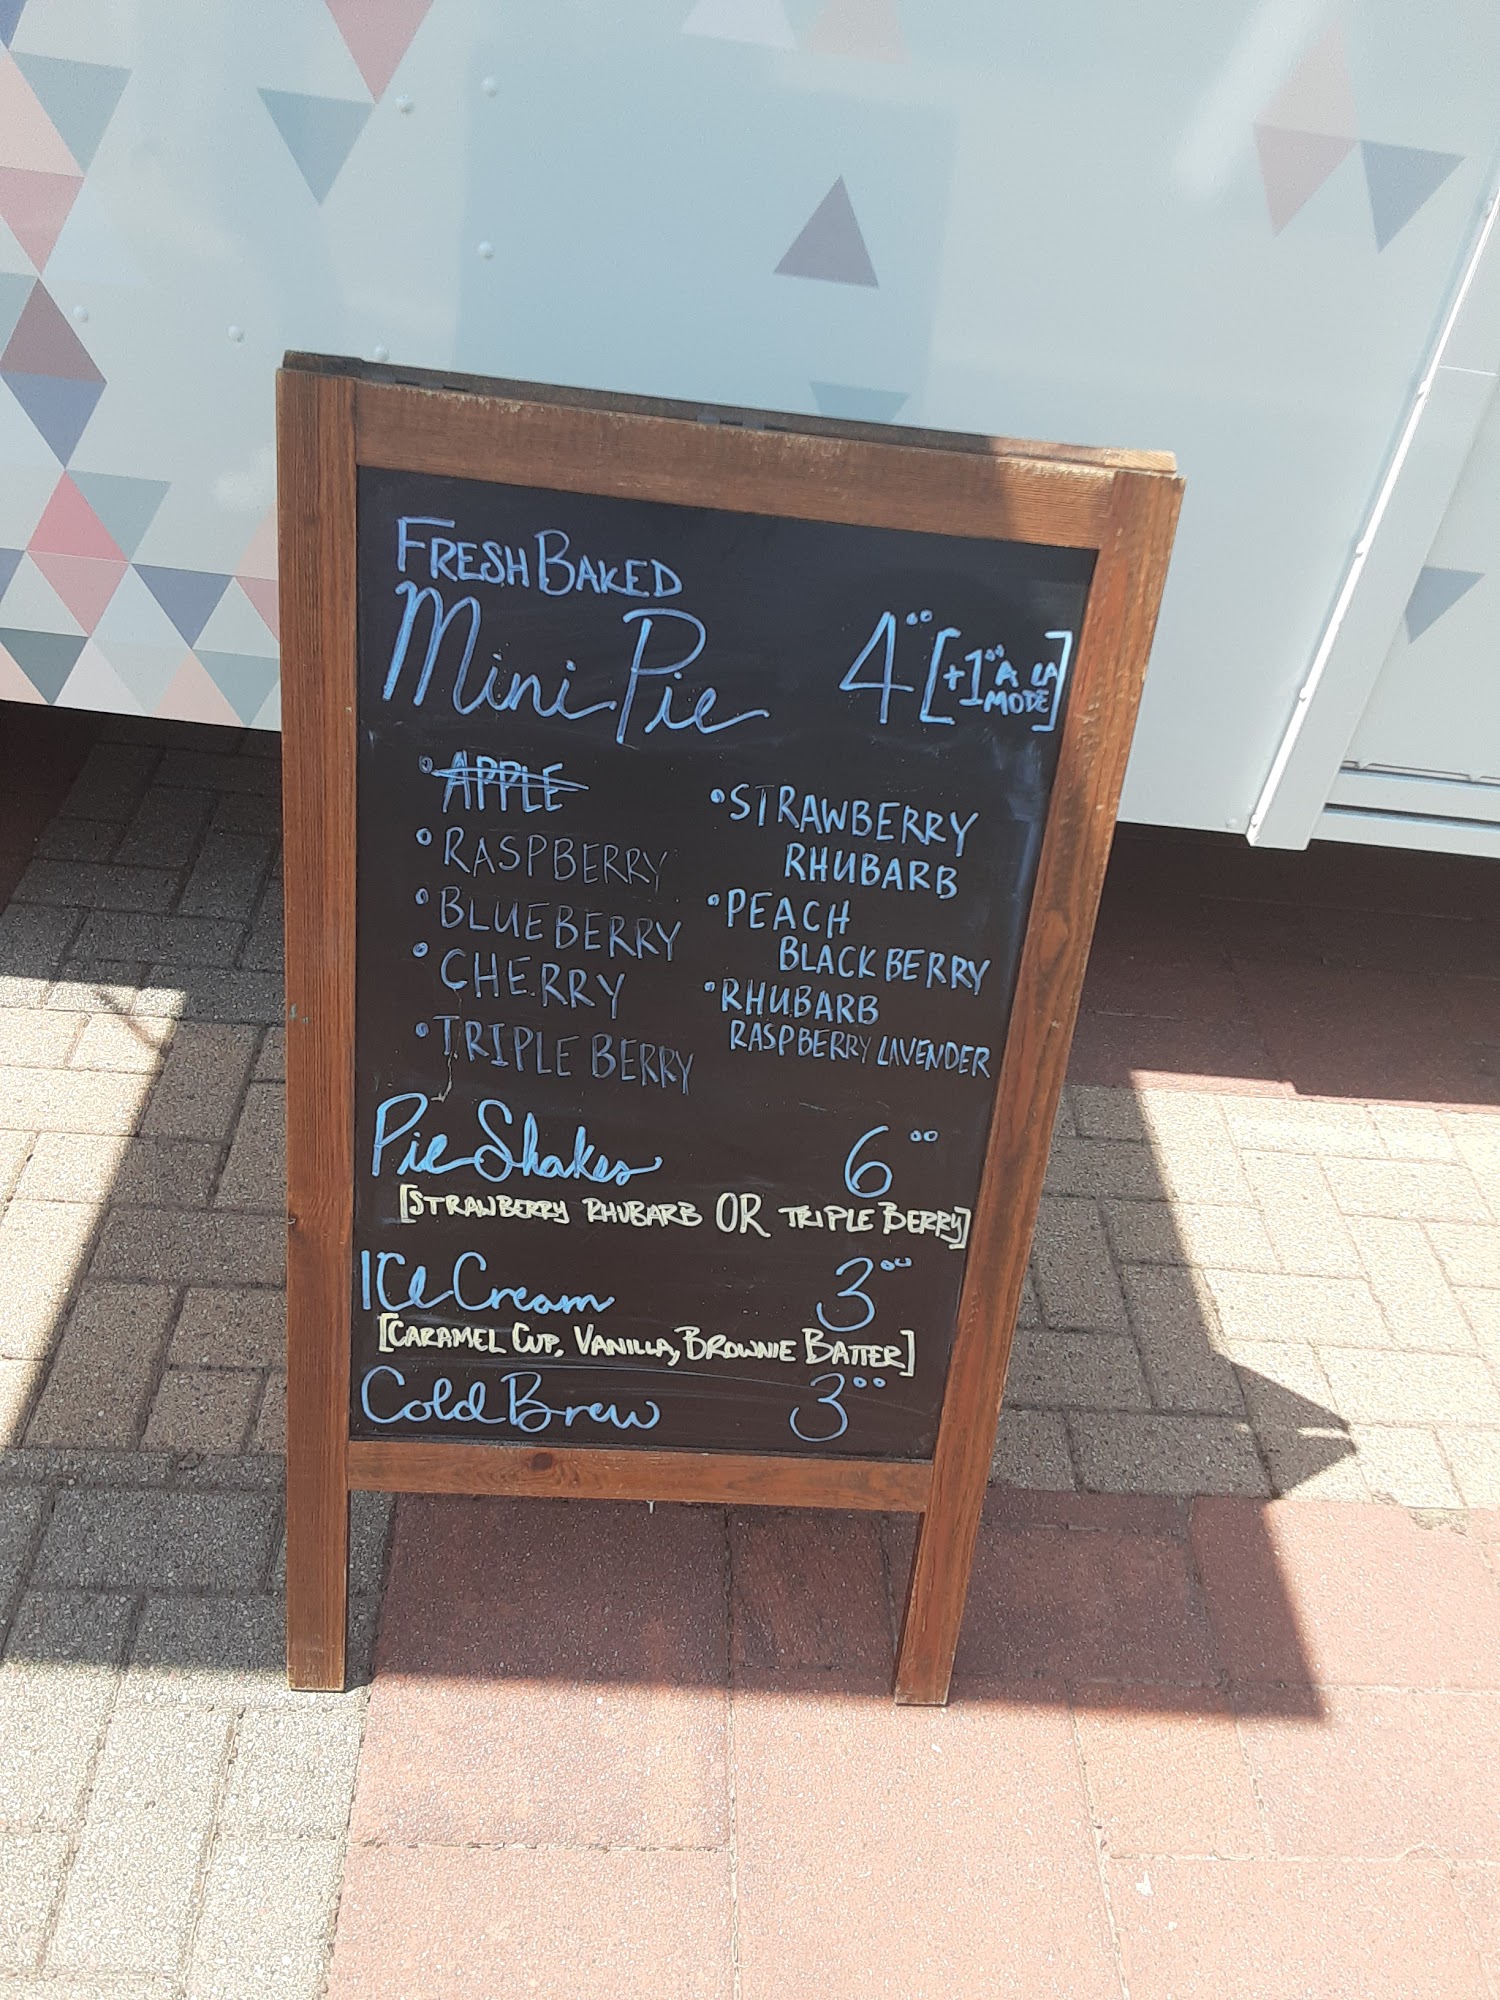 FRESH BAKED
Mini Pie 4.00 [+1.00 A LA MODE]
• APPLE
• RASPBERRY
• BLUEBERRY
• CHERRY
• TRIPLE BERRY
• STRAWBERRY
RHUBARB
• PEACH
BLACKBERRY
• RHUBARB
RASPBERRY LAVENDER
Pie Shakes 6.00
[STRAWBERRY RHUBARB OR TRIPLE BERRY]
Ice Cream 3.00
[CARAMEL CUP, VANILLA, BROWNIE BATTER]
Cold Brew 3.00